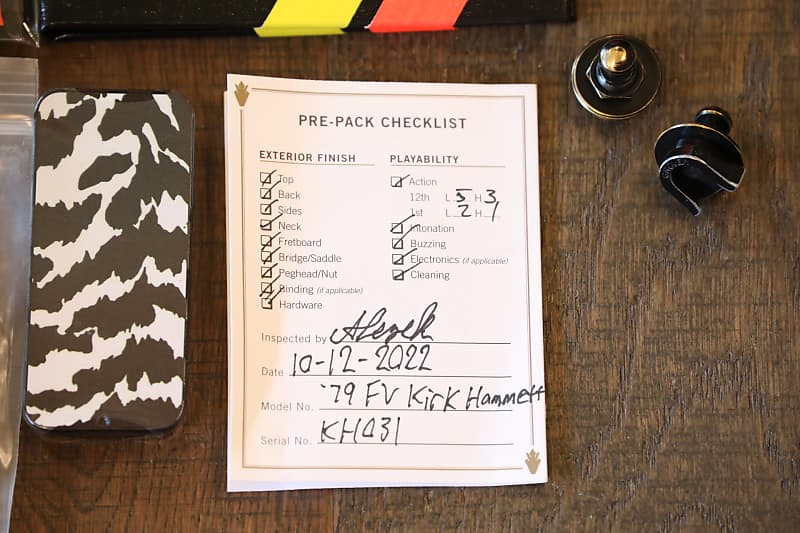 PRE-PACK CHECKLIST
EXTERIOR FINISH
Top
Back
Sides
Neck
Fretboard
Bridge/Saddle
Peghead/Nut
Binding (if applicable)
Hardware
PLAYABILITY
Action
12th L 5 H 3
1st L 2 H 1
Intonation
Buzzing
Electronics (if applicable)
Cleaning
Inspected by
Date 10-12-2022
Model No. '79 FV Kirk Hammett
Serial No. KH031